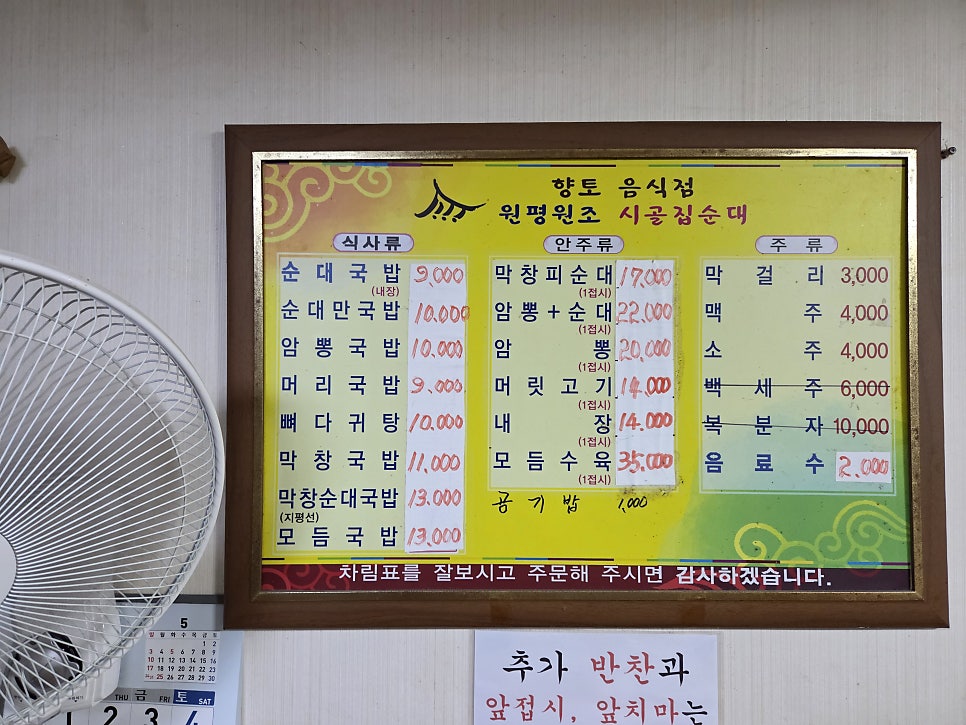 향토 음식점
원평원조 시골집순대
식사류
순대국밥 9,000
(내장)
순대만국밥 10,000
암뽕국밥 10,000
머리국밥 9,000
뼈다귀탕 10,000
막창국밥 11,000
막창순대국밥 13,000
(지평선)
모듬국밥 13,000
안주류
막창피순대 17,000
(1접시)
암뽕+순대 22,000
(1접시)
암뽕 20,000
(1접시)
머릿고기 14,000
(1접시)
내장 14,000
(1접시)
모듬수육 35,000
(1접시)
공기밥 1,000
주류
막걸리 3,000
맥주 4,000
소주 4,000
백세주 6,000
복분자 10,000
음료수 2,000
차림표를 잘보시고 주문해 주시면 감사하겠습니다.
추가 반찬과
앞접시, 앞치마는
5
일 월 화 수 목 금 토
1 2
3 4 5 6 7 8 9
10 11 12 13 14 15 16
17 18 19 20 21 22 23
25 26 27 28 29 30
THU 금 FRI 토 SAT
1 2 3 4